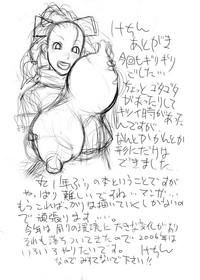 けちん
あとがき
今回もギリギリ
でした…
ちょっとゴタゴタ
があったりして
ヤバイ時があった
んですが
なんとかかんとか
形にだけは
できました
丸1年ぶりの本ということですが
やっぱり難しいですね、マンガ…
もっとこればっかりは描いていくしかないの
で頑張ります…
今年は周りの環境に大きな変化があり
それも落ちついてきたので2006年は
いろいろやりたいです。
なのでみすてないで下さい!!
けちん